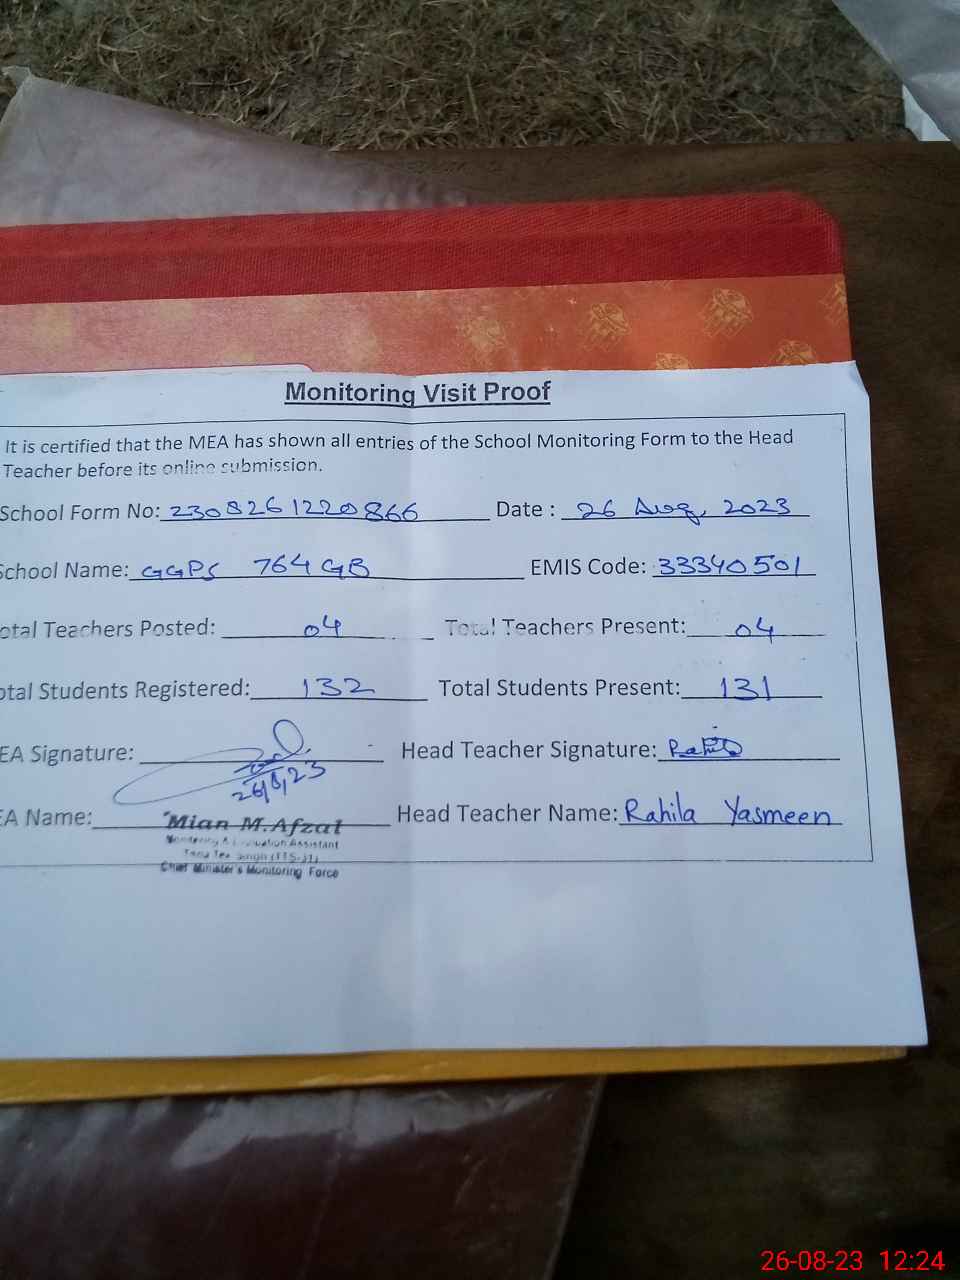 Monitoring Visit Proof
It is certified that the MEA has shown all entries of the School Monitoring Form to the Head
Teacher before its online submission.
School Form No: 230826 1220866 Date : 26 Aug, 2023
School Name: GGPS 764 GB EMIS Code: 33340501
otal Teachers Posted: 04 Total Teachers Present: 04
otal Students Registered: 132 Total Students Present: 131
EA Signature: Head Teacher Signature: Rahila
26/8/23
EA Name: Mian M. Afzal Head Teacher Name: Rahila Yasmeen
Monitoring & Evaluation Assistant
Toba Tek Singh (TTS-31)
Chief Minister's Monitoring Force
26-08-23 12:24